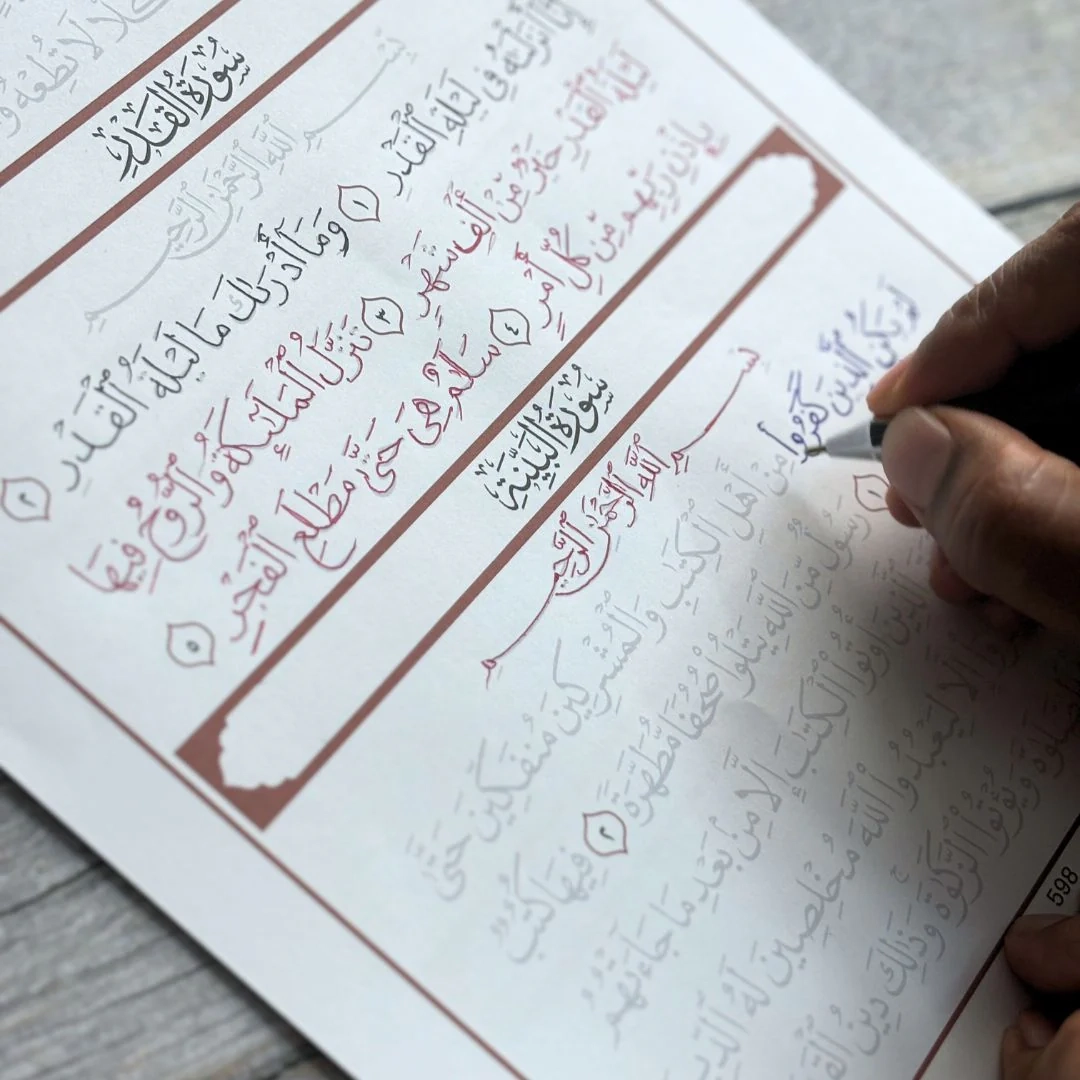 كَلَّا لَا تُطِعْهُ
سُورَةُ الْقَدْرِ
بِسْمِ اللَّهِ الرَّحْمَٰنِ الرَّحِيمِ
إِنَّآ أَنزَلْنَٰهُ فِى لَيْلَةِ ٱلْقَدْرِ ١ وَمَآ أَدْرَىٰكَ مَا لَيْلَةُ ٱلْقَدْرِ ٢
لَيْلَةُ ٱلْقَدْرِ خَيْرٌ مِّنْ أَلْفِ شَهْرٍ ٣ تَنَزَّلُ ٱلْمَلَٰٓئِكَةُ وَٱلرُّوحُ فِيهَا
بِإِذْنِ رَبِّهِم مِّن كُلِّ أَمْرٍ ٤ سَلَٰمٌ هِىَ حَتَّىٰ مَطْلَعِ ٱلْفَجْرِ ٥
سُورَةُ الْبَيِّنَةِ
بِسْمِ اللَّهِ الرَّحْمَٰنِ الرَّحِيمِ
لَمْ يَكُنِ ٱلَّذِينَ كَفَرُوا۟ مِنْ أَهْلِ ٱلْكِتَٰبِ وَٱلْمُشْرِكِينَ مُنفَكِّينَ حَتَّىٰ
١ رَسُولٌ مِّنَ ٱللَّهِ يَتْلُوا۟ صُحُفًا مُّطَهَّرَةً ٢ فِيهَا كُتُبٌ
ٱلَّذِينَ أُوتُوا۟ ٱلْكِتَٰبَ إِلَّا مِنۢ بَعْدِ مَا جَآءَتْهُمُ
إِلَّا لِيَعْبُدُوا۟ ٱللَّهَ مُخْلِصِينَ لَهُ ٱلدِّينَ
ٱلصَّلَوٰةَ وَيُؤْتُوا۟ ٱلزَّكَوٰةَ ۚ وَذَٰلِكَ دِينُ
598